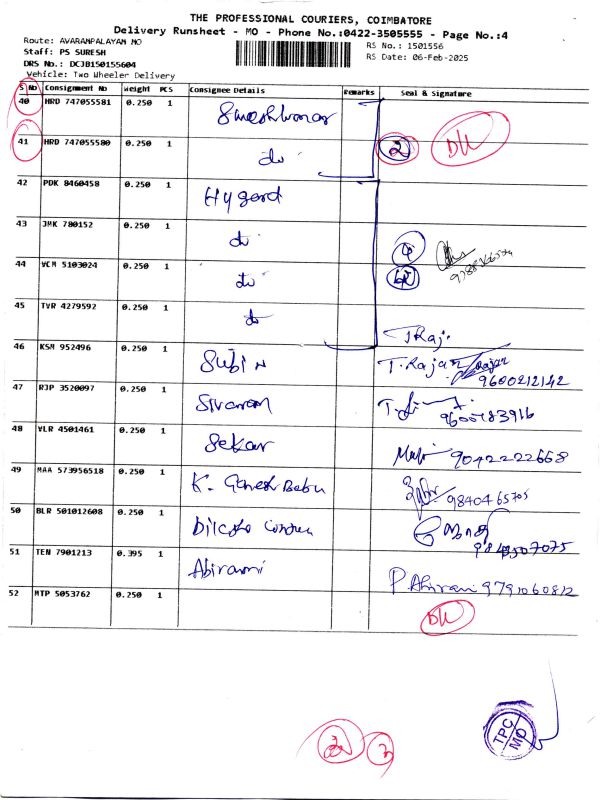 THE PROFESSIONAL COURIERS, COIMBATORE
Delivery Runsheet - MO - Phone No.:0422-3505555 - Page No.:4
Route: AVARAMPALAYAM MO
RS No.: 1501556
Staff: PS SURESH
RS Date: 06-Feb-2025
DRS No.: DCJB150155604
Vehicle: Two Wheeler Delivery
S No Consignment No Weight PCS Consignee Details Remarks Seal & Signature
40 HRD 747055581 0.250 1
41 HRD 747055580 0.250 1 do 2 DW
42 PDK 8460458 0.250 1
43 JMK 780152 0.250 1 do 4
44 VCM 5103024 0.250 1 do
45 TVR 4279592 0.250 1 do
46 KSM 952496 0.250 1 Subin T. Rajan 9600212142
47 RJP 3520097 0.250 1 Sivaram
48 VLR 4501461 0.250 1 Sekar 9042222668
49 MAA 573956518 0.250 1 K. Ganesh Babu 9840465705
50 BLR 501012608 0.250 1
51 TEN 7901213 0.395 1 Abirami P. Abirami 9791060812
52 MTP 5053762 0.250 1 DW
TPC
MO